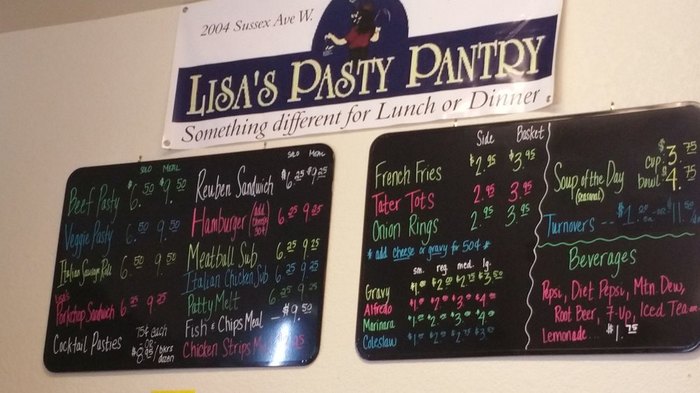 2004 Sussex Ave W.
LISA'S PASTY PANTRY
Something different for Lunch or Dinner
Solo Meal
Beef Pasty $6.50 $9.50
Veggie Pasty 6.50 9.50
Italian Sausage Roll 6.50 9.50
Porkchop Sandwich 6.25 9.25
Cocktail Pasties 75¢ each
or
$8.95/dozen
Solo Meal
Reuben Sandwich $6.25 $9.25
Hamburger (add cheese 50¢) 6.25 9.25
Meatball Sub 6.25 9.25
Italian Chicken Sub 6.25 9.25
Patty Melt 6.25 9.25
Fish & Chips Meal - $9.50
Chicken Strips
Side Basket
French Fries $2.95 $3.95
Tater Tots 2.95 3.95
Onion Rings 2.95 3.95
* add cheese or gravy for 50¢ *
sm. reg. med. lg.
Gravy
Alfredo
Marinara
Coleslaw
Soup of the Day cup $3.75
(seasonal) bowl $4.75
Turnovers --
Beverages
Pepsi, Diet Pepsi, Mtn. Dew,
Root Beer, 7-Up, Iced Tea
Lemonade... $1.75